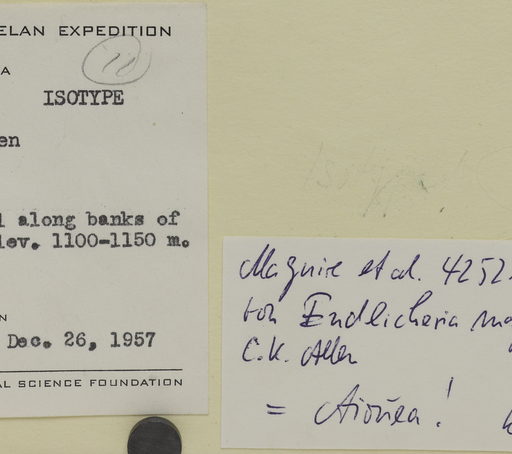 ELAN EXPEDITION
A
ISOTYPE
en
l along banks of
lev. 1100-1150 m.
N
Dec. 26, 1957
AL SCIENCE FOUNDATION
Isotype!
Maguire et al. 4252
von Endlicheria ma
C.K. Allen
= Aiouea!